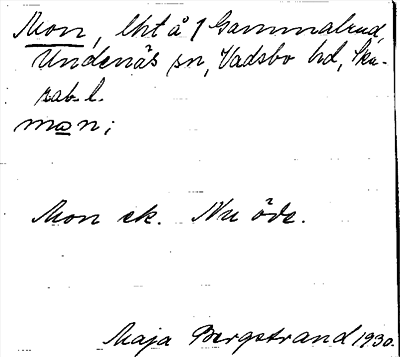 Mon, lht å 1 Gammalrud,
Undenäs sn, Vadsbo hd, Ska-
rab. l.
mon;
Mon ek. Nu öde.
Maja Bergstrand 1930.